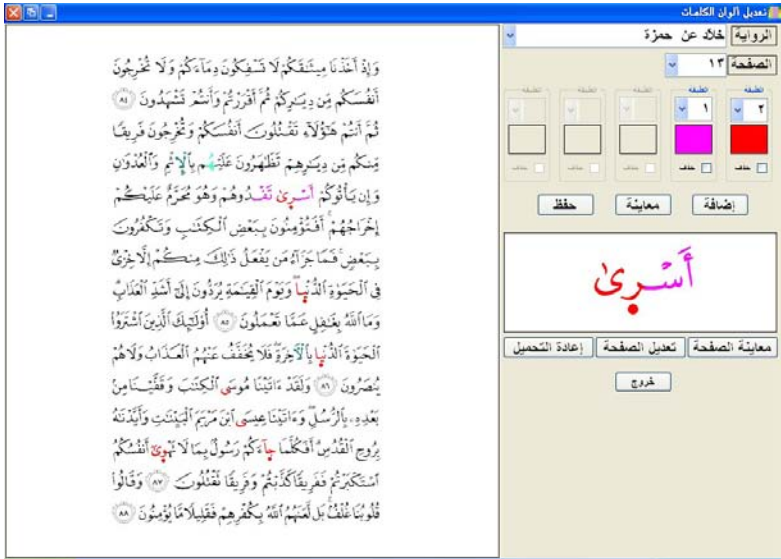 تعديل ألوان الكلمات
الرواية خلاد عن حمزة
الصفحة ١٣
٢ ١
حذف حذف حذف حذف حذف
إضافة معاينة حفظ
أَسْرِىٰ
معاينة الصفحة تعديل الصفحة إعادة التحميل
خروج
وَإِذْ أَخَذْنَا مِيثَـٰقَكُمْ لَا تَسْفِكُونَ دِمَآءَكُمْ وَلَا تُخْرِجُونَ
أَنفُسَكُم مِّن دِيَـٰرِكُمْ ثُمَّ أَقْرَرْتُمْ وَأَنتُمْ تَشْهَدُونَ ٨٤
ثُمَّ أَنتُمْ هَـٰٓؤُلَآءِ تَقْتُلُونَ أَنفُسَكُمْ وَتُخْرِجُونَ فَرِيقًا
مِّنكُم مِّن دِيَـٰرِهِمْ تَظَـٰهَرُونَ عَلَيْهُم بِٱلْإِثْمِ وَٱلْعُدْوَٰنِ
وَإِن يَأْتُوكُمْ أَسْرِىٰ تَفْدُوهُمْ وَهُوَ مُحَرَّمٌ عَلَيْكُمْ
إِخْرَاجُهُمْ أَفَتُؤْمِنُونَ بِبَعْضِ ٱلْكِتَـٰبِ وَتَكْفُرُونَ
بِبَعْضٍ فَمَا جَزَآءُ مَن يَفْعَلُ ذَٰلِكَ مِنكُمْ إِلَّا خِزْىٌ
فِى ٱلْحَيَوٰةِ ٱلدُّنْيَا وَيَوْمَ ٱلْقِيَـٰمَةِ يُرَدُّونَ إِلَىٰٓ أَشَدِّ ٱلْعَذَابِ
وَمَا ٱللَّهُ بِغَـٰفِلٍ عَمَّا تَعْمَلُونَ ٨٥ أُو۟لَـٰٓئِكَ ٱلَّذِينَ ٱشْتَرَوُا۟
ٱلْحَيَوٰةَ ٱلدُّنْيَا بِٱلْـَٔاخِرَةِ فَلَا يُخَفَّفُ عَنْهُمُ ٱلْعَذَابُ وَلَا هُمْ
يُنصَرُونَ ٨٦ وَلَقَدْ ءَاتَيْنَا مُوسَى ٱلْكِتَـٰبَ وَقَفَّيْنَا مِنۢ
بَعْدِهِۦ بِٱلرُّسُلِ وَءَاتَيْنَا عِيسَى ٱبْنَ مَرْيَمَ ٱلْبَيِّنَـٰتِ وَأَيَّدْنَـٰهُ
بِرُوحِ ٱلْقُدُسِ أَفَكُلَّمَا جَآءَكُمْ رَسُولٌۢ بِمَا لَا تَهْوِىٰٓ أَنفُسُكُمُ
ٱسْتَكْبَرْتُمْ فَفَرِيقًا كَذَّبْتُمْ وَفَرِيقًا تَقْتُلُونَ ٨٧ وَقَالُوا۟
قُلُوبُنَا غُلْفٌۢ بَل لَّعَنَهُمُ ٱللَّهُ بِكُفْرِهِمْ فَقَلِيلًا مَّا يُؤْمِنُونَ ٨٨